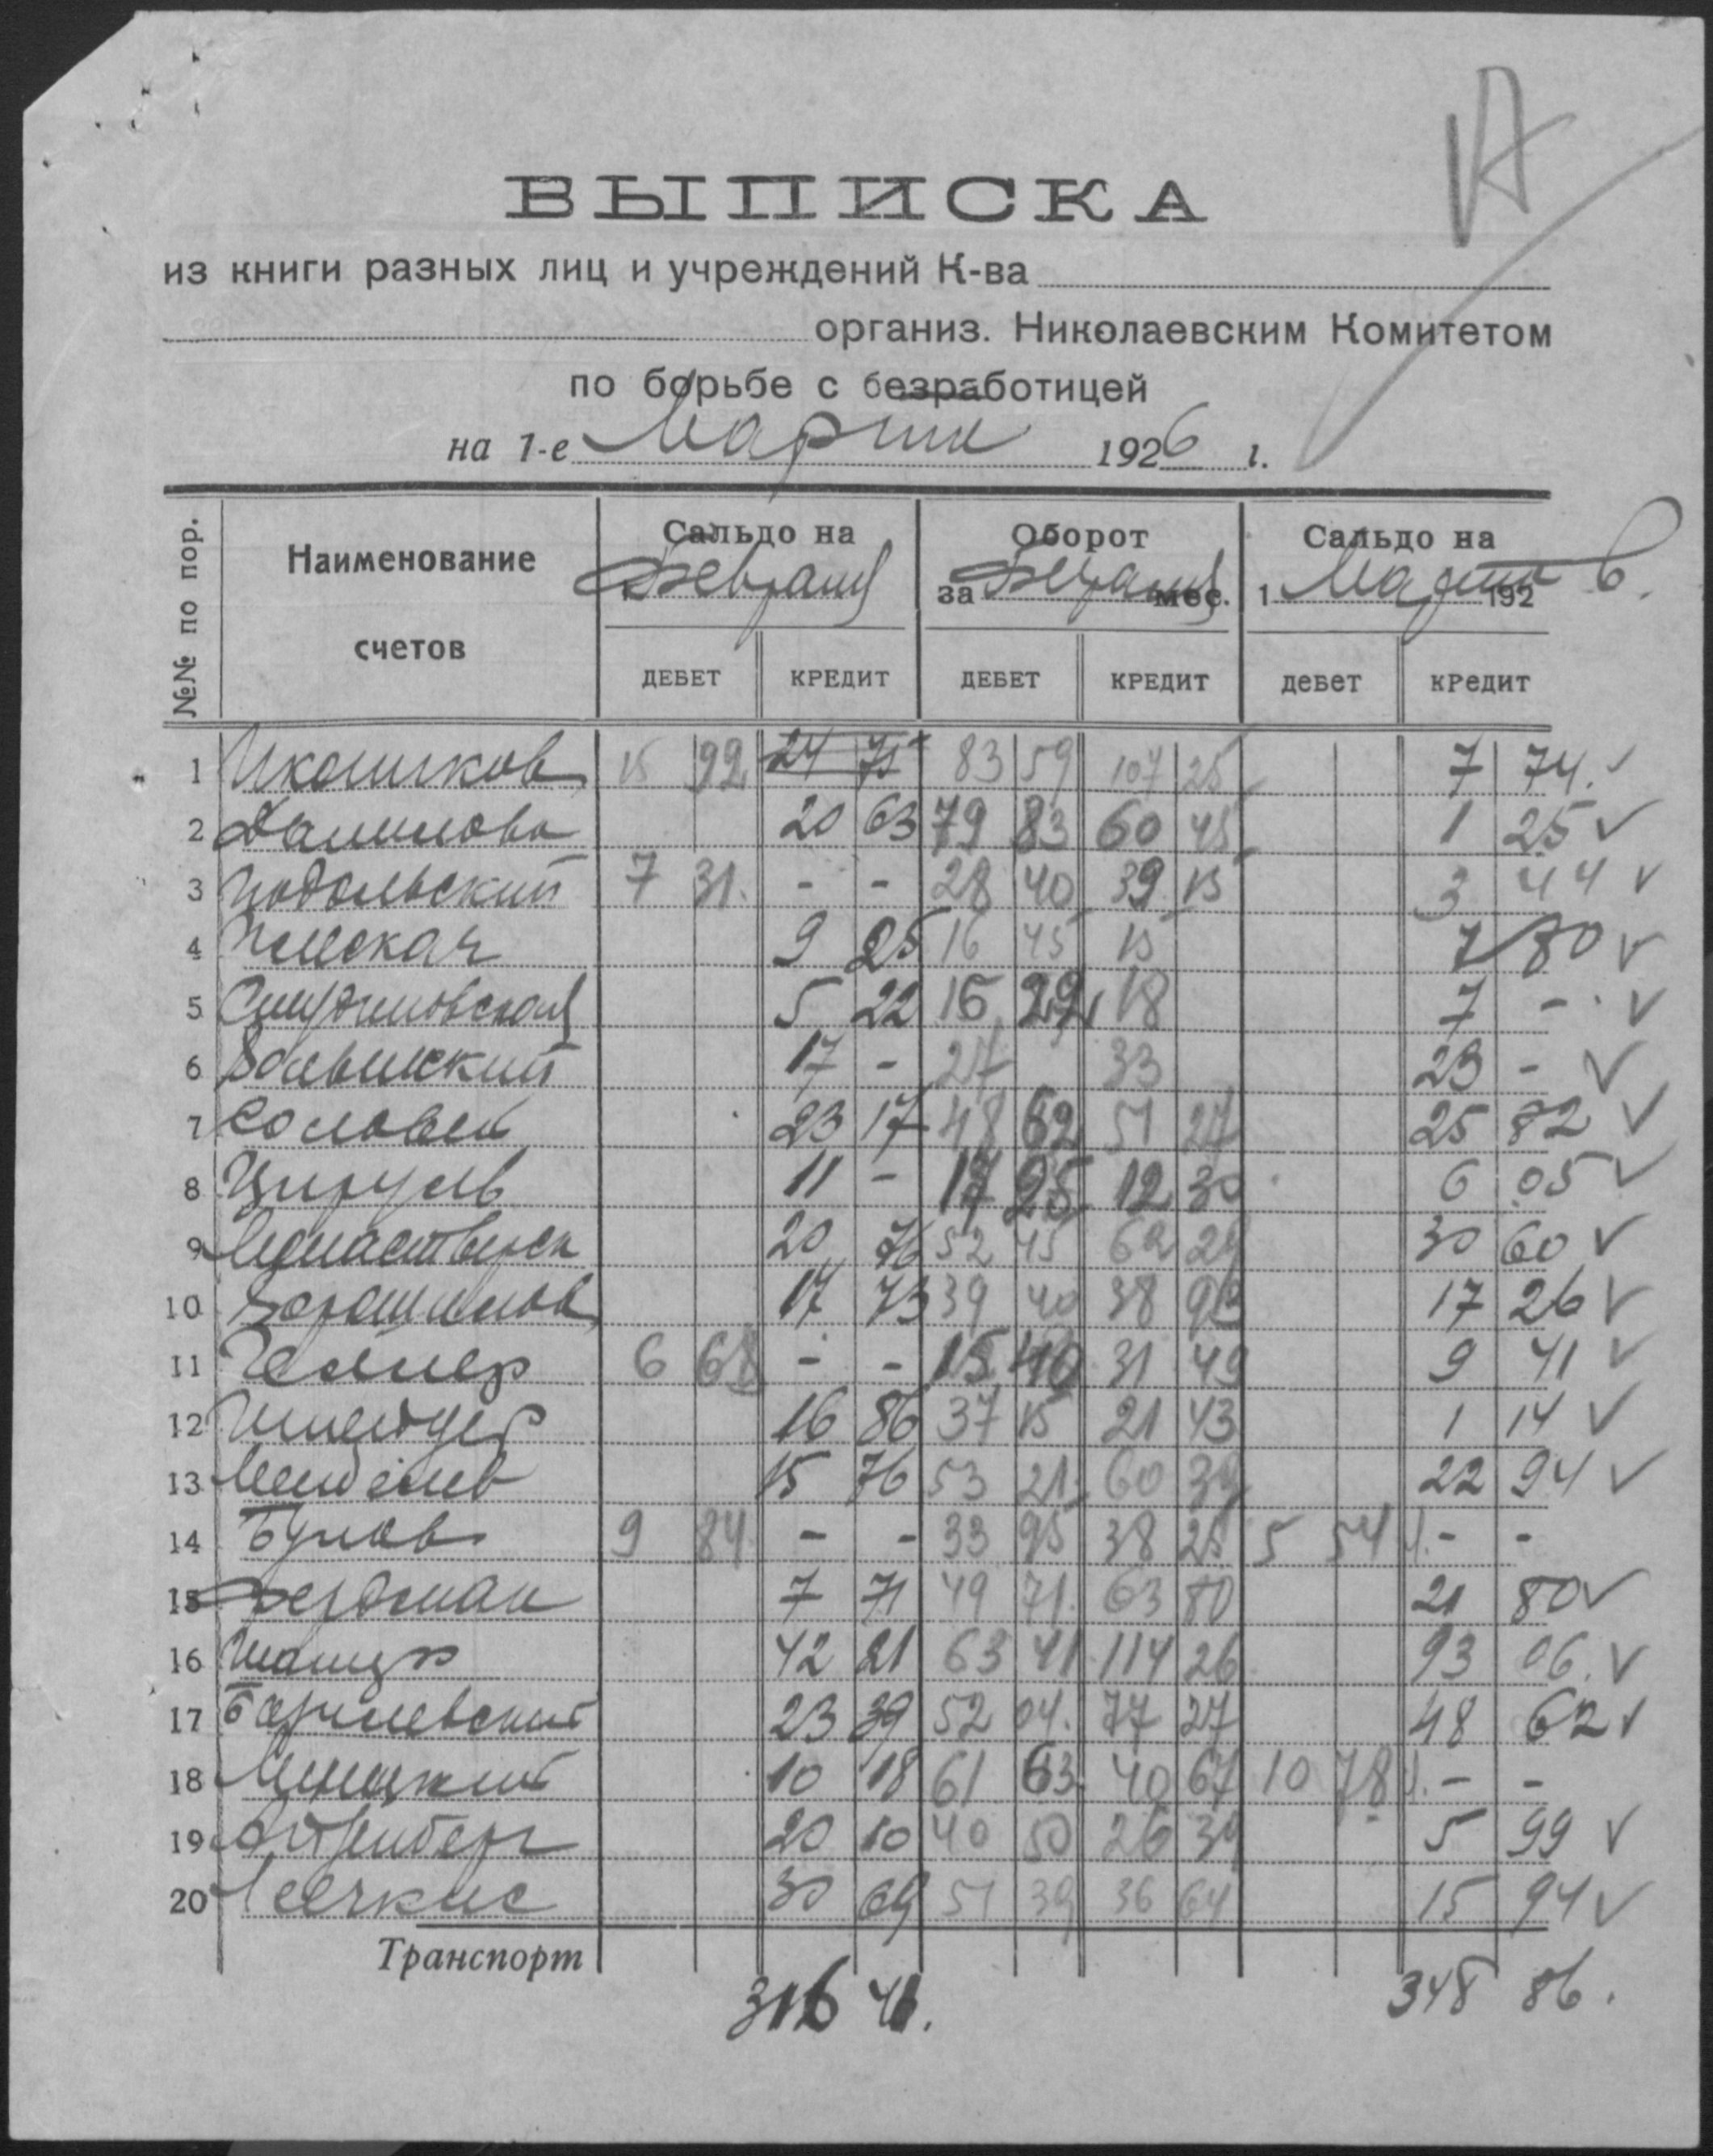 ВЫПИСКА
из книги разных лиц и учреждений К-ва
организ. Николаевским Комитетом
по борьбе с безработицей
на 1-е Марта 1926 г.
№№ по пор. Наименование счетов Сальдо на Февраля Оборот за Февраля мес. Сальдо на 1 Марта 1926
ДЕБЕТ КРЕДИТ ДЕБЕТ КРЕДИТ дебет кредит
1 15 92 24 75 83 59 107 25 7 74
2 Данилова 20 63 79 83 60 45 1 25
3 Подольский 7 31 - - 28 40 39 15 3 44
4 9 25 16 45 15 7 80
5 5 22 16 22 18 7 -
6 17 - 27 33 23 -
7 Соловей 23 17 48 62 51 27 25 82
8 Цируль 11 - 17 25 12 30 6 05
9 20 76 52 45 62 29 30 60
10 17 73 39 40 38 93 17 26
11 6 68 - - 15 40 31 49 9 41
12 Шнейдер 16 86 37 15 21 43 1 14
13 15 76 53 21 60 39 22 94
14 9 84 - - 33 95 38 25 5 54 - -
15 Фердман 7 71 49 71 63 80 21 80
16 42 21 63 41 114 26 93 06
17 23 39 52 04 77 27 48 62
18 10 18 61 63 40 67 10 78 - -
19 20 10 40 50 26 39 5 99
20 30 69 51 39 36 64 15 94
Транспорт
316 41.
348 86.